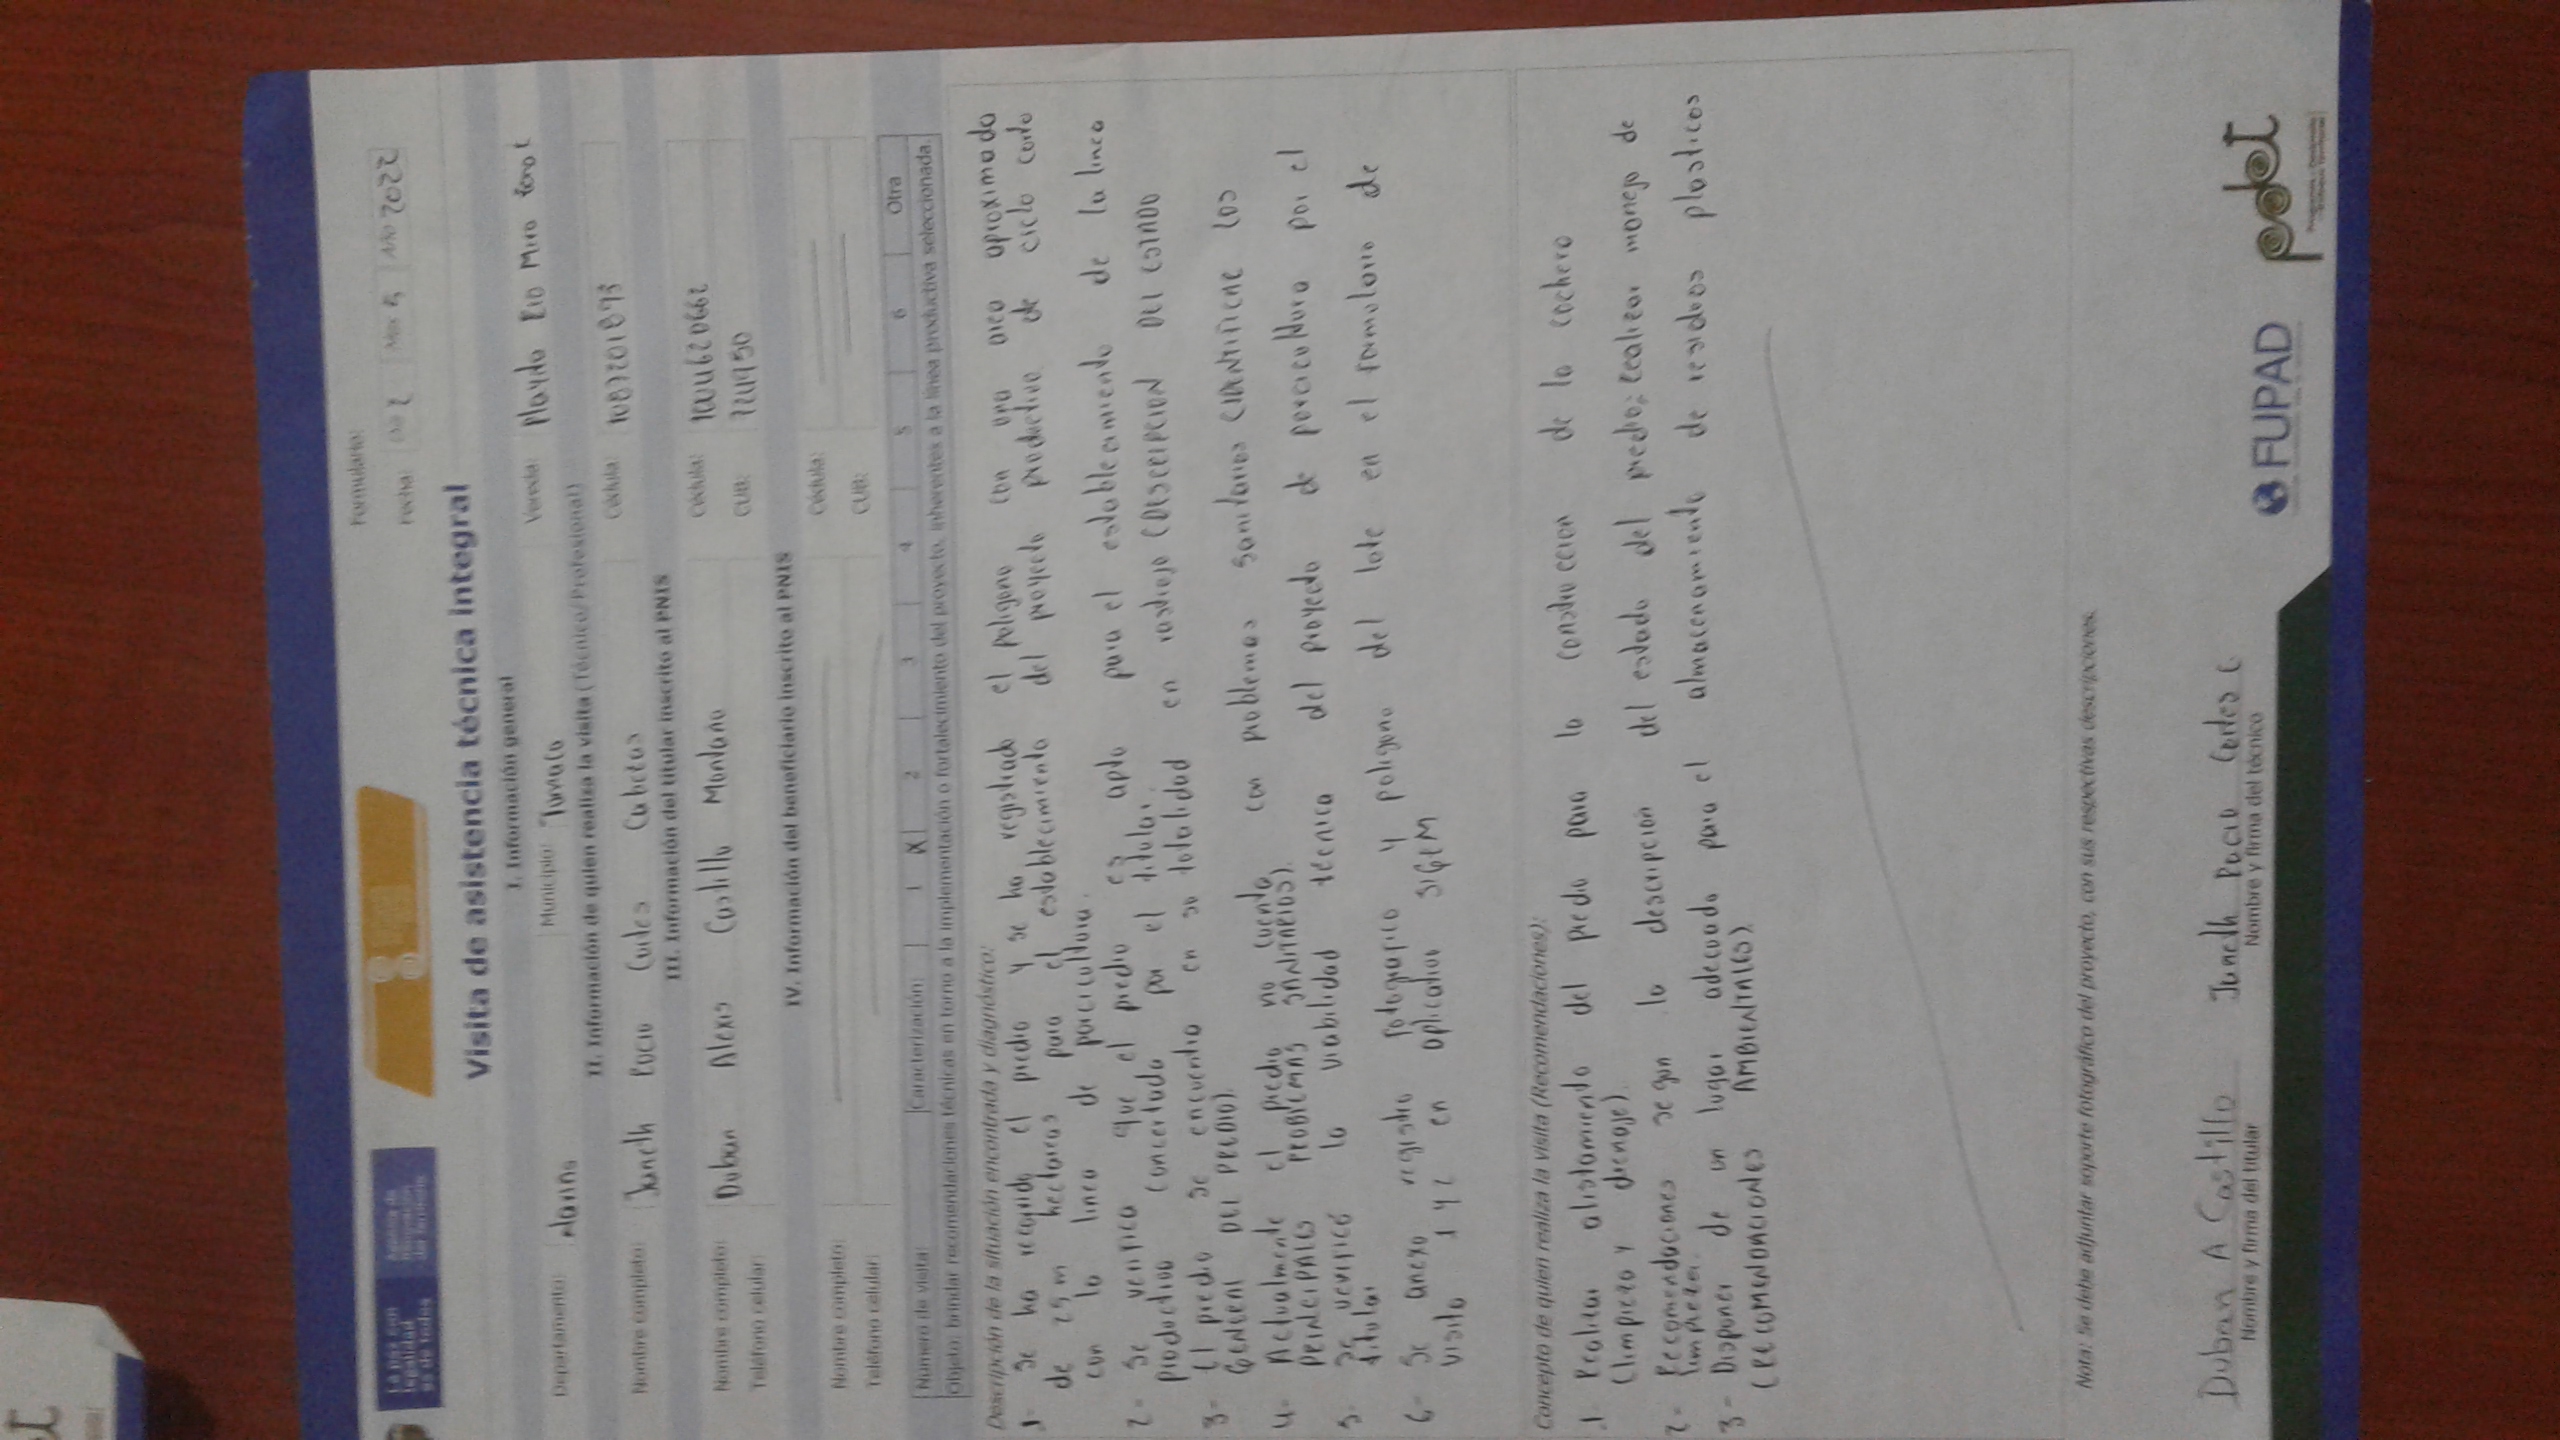 La paz con
legalidad
es de todos
Formulario:
Fecha: Día 2 Mes 5 Año 2022
Visita de asistencia técnica integral
I. Información general
Departamento: Nariño Municipio: Tumaco Vereda: Playita Rio Mira
II. Información de quien realiza la visita (Técnico/Profesional)
Nombre completo: Janeth Rocio Cortes Cabezas Cédula:
III. Información del titular inscrito al PNIS
Nombre completo: Duban Alexis Castillo Montaño Cédula:
Teléfono celular: CUB:
IV. Información del beneficiario inscrito al PNIS
Nombre completo: Cédula:
Teléfono celular: CUB:
Número de visita: Caracterización: 1 X 2 3 4 5 6 Otra
Objeto: brindar recomendaciones técnicas en torno a la implementación o fortalecimiento del proyecto, inherentes a la línea productiva seleccionada.
Descripción de la situación encontrada y diagnóstico:
1- Se ha recorrido el predio y se ha registrado el poligono con una area aproximada
de 25 m hectareas para el establecimiento del proyecto productivo de ciclo corto
con la linea de porcicultura.
2- Se verifica que el predio es apto para el establecimiento de la linea
productiva concertada por el titular.
3- El predio se encuentra en su totalidad en rastrojo (DESCRIPCION DEL ESTADO
GENERAL DEL PREDIO).
4- Actualmente el predio no cuenta con problemas sanitarios (IDENTIFICAR LOS
PRINCIPALES PROBLEMAS SANITARIOS).
5- Se verificó la viabilidad técnica del proyecto de porcicultura por el
titular
6- Se anexa registro fotografico y poligono del lote en el formulario de
visita 1 y 2 en aplicativo SIGEM
Concepto de quien realiza la visita (Recomendaciones):
1- Realizar alistamiento del predio para la construccion de la cochera
(limpieza y drenaje).
2- Recomendaciones segun la descripción del estado del predio: realizar manejo de
limpieza.
3- Disponer de un lugar adecuado para el almacenamiento de residuos plasticos
(RECOMENDACIONES AMBIENTALES)
Nota: Se debe adjuntar soporte fotográfico del proyecto, con sus respectivas descripciones.
Duban A Castillo Janeth Rocio Cortes C
Nombre y firma del titular Nombre y firma del técnico
FUPAD pdet